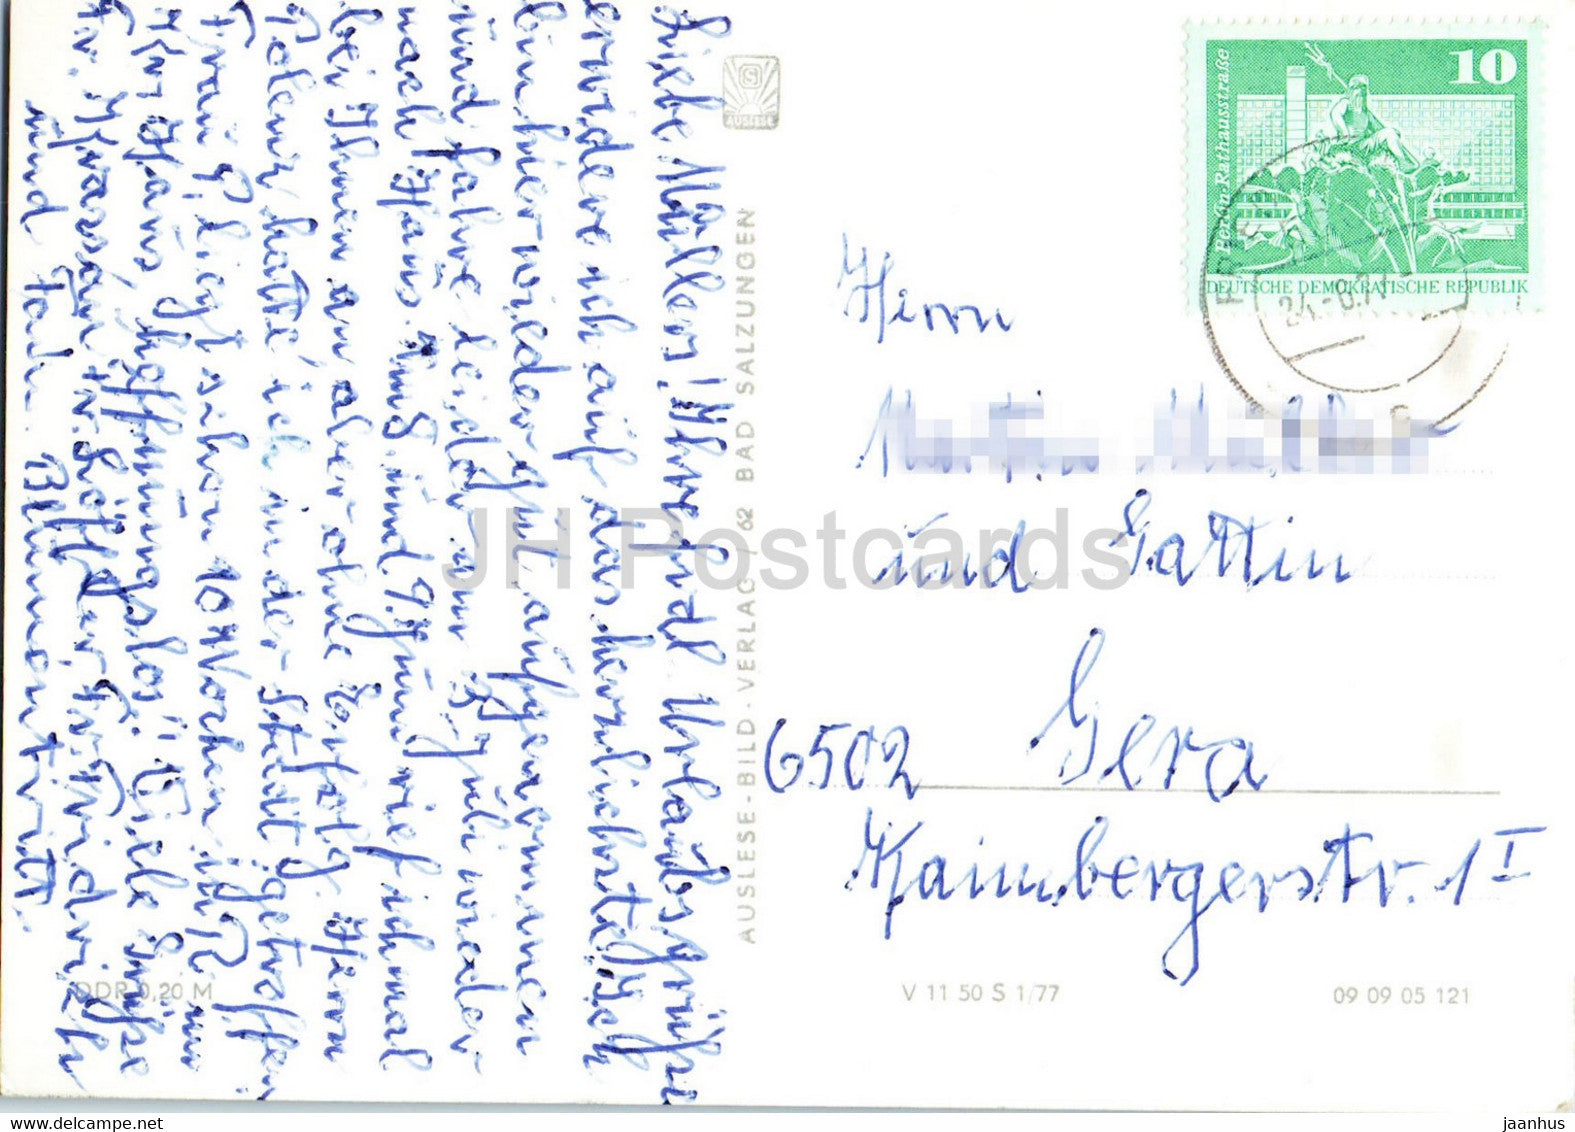 Liebe Müllers! Ihre frdl. Urlaubsgrüße
erwidere ich auf das herzlichste. Ich
bin hier wieder gut aufgenommen
und fahre leider am 5. Juli wieder
nach Haus. Am 8. und 9. Juni rief ich mal
bei Ihnen an aber ohne Erfolg. Herrn
Polenz hatte ich in der Stadt getroffen
Frau P. liegt schon 10 Wochen im R nur
Kr. Haus, "hoffnungslos". Viele Grüße
Fr. Löffler Fr. Friedrich
und Fam.
AUSLESE
AUSLESE-BILD-VERLAG / 62 BAD SALZUNGEN
DDR 0,20 M
10
Berlin-Rathausstraße
DEUTSCHE DEMOKRATISCHE REPUBLIK
Herrn
und Gattin
6502 Gera
Kaimbergerstr. 1 I
V 11 50 S 1/77
09 09 05 121
JH Postcards
www.delcampe.net
jaanhus